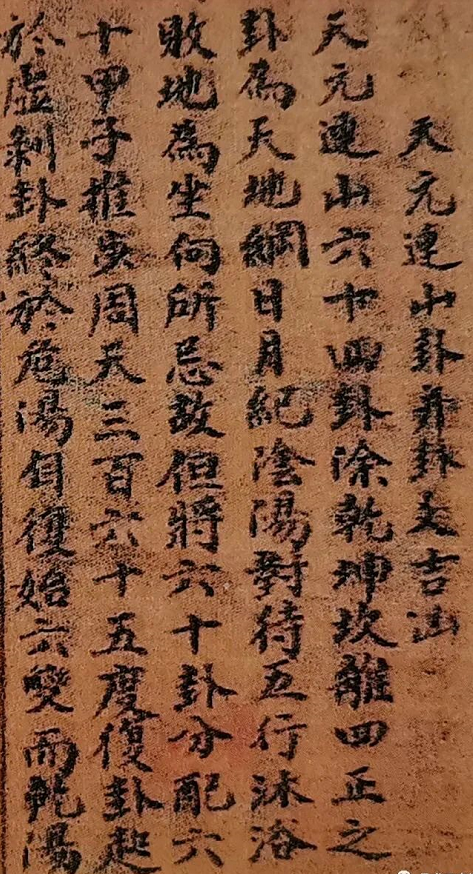 天元連山卦并卦爻吉凶
天元連山六十四卦除乾坤坎離四正之
卦為天地綱日月紀陰陽對待五行沐浴
敗地為坐向所忌故但將六十卦分配六
十甲子推周天三百六十五度復卦起
於虛剝卦終於危陽自復始六變而乾陽